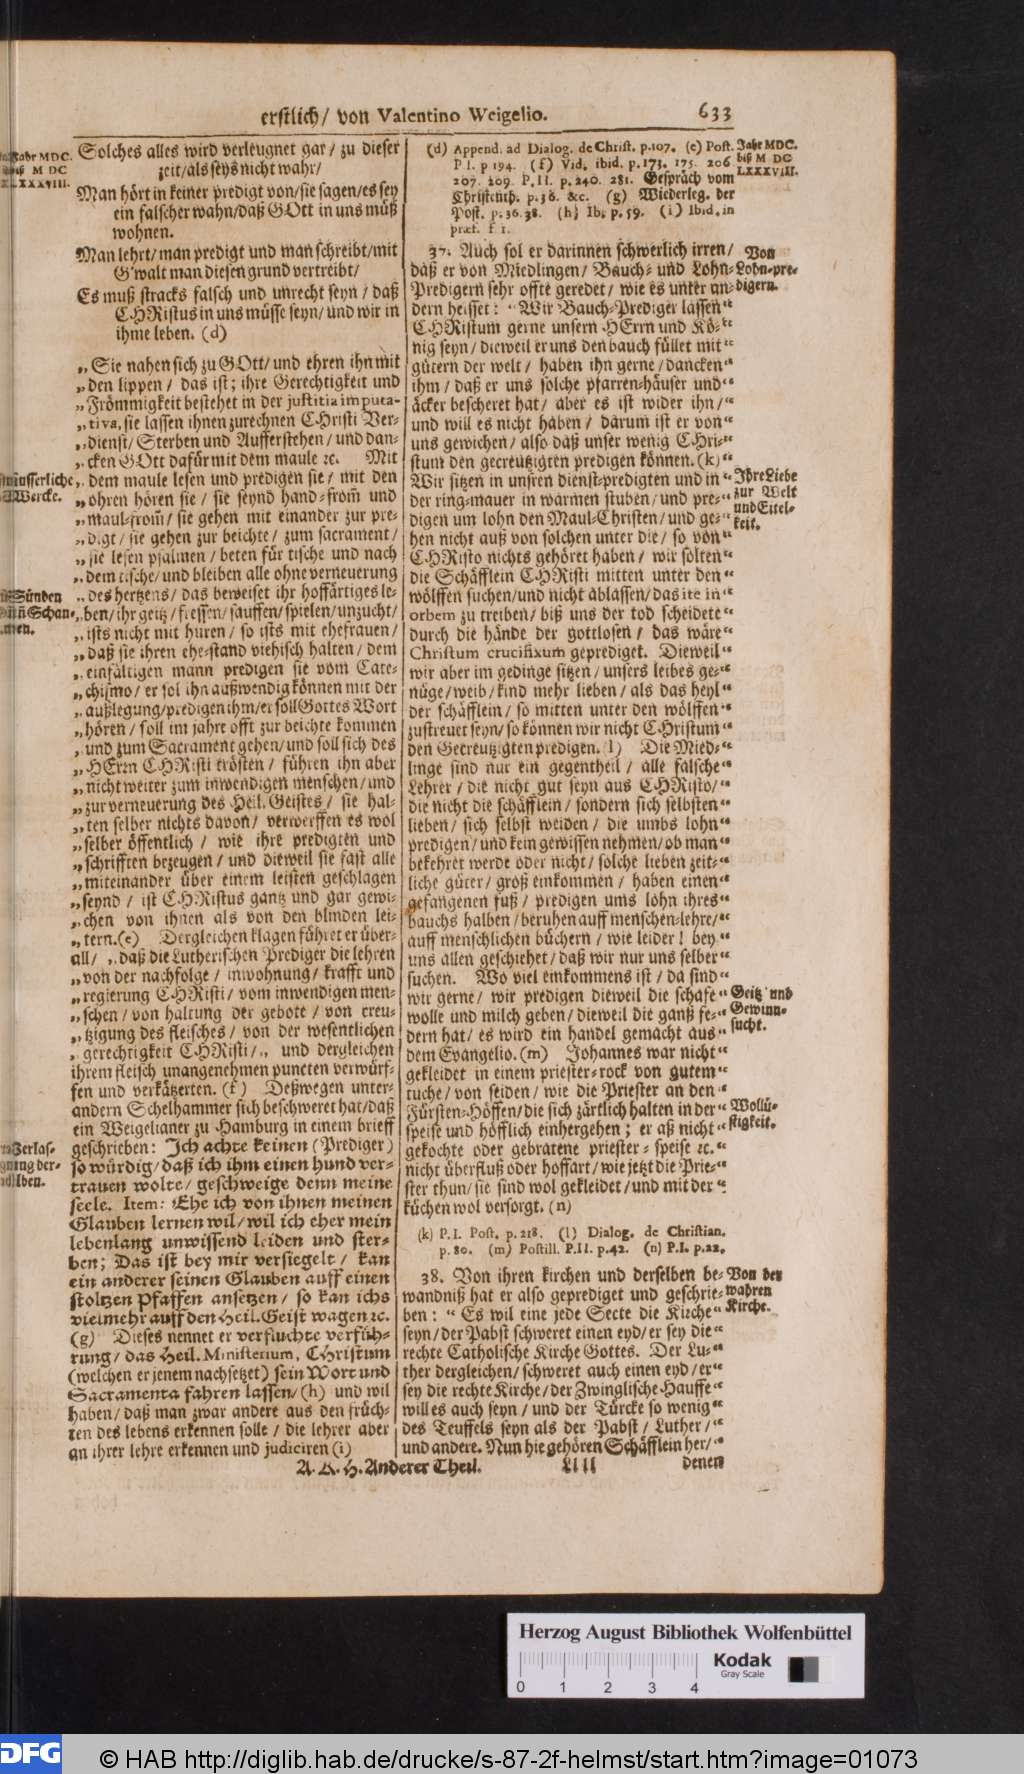 erstlich/ von Valentino Weigelio. 633
Jahr MDC.
biß M DC
LXXXVIII.
Solches alles wird verleugnet gar/ zu dieser
zeit/ als seys nicht wahr/
Man hört in keiner predigt von/ sie sagen/ es sey
ein falscher wahn/ daß GOtt in uns müß
wohnen.
Man lehrt/ man predigt und man schreibt/ mit
G'walt man diesen grund vertreibt/
Es muß stracks falsch und unrecht seyn/ daß
CHRistus in uns müsse seyn/ und wir in
ihme leben. (d)
„ Sie nahen sich zu GOtt/ und ehren ihn mit
„ den lippen/ das ist; ihre Gerechtigkeit und
„ Frömmigkeit bestehet in der justitia imputa-
„ tiva, sie lassen ihnen zurechnen CHristi Ver-
„ dienst/ Sterben und Aufferstehen/ und dan-
„ cken GOtt dafür mit dem maule ꝛc. Mit
„ dem maule lesen und predigen sie/ mit den
„ ohren hören sie/ sie seynd hand-from̃ und
„ maul-from̃/ sie gehen mit einander zur pre-
„ digt/ sie gehen zur beichte/ zum sacrament/
„ sie lesen psalmen/ beten für tische und nach
„ dem tische/ und bleiben alle ohne verneuerung
„ des hertzens/ das beweiset ihr hoffärtiges le-
„ ben/ ihr geitz/ fressen/ sauffen/ spielen/ unzucht/
„ ists nicht mit huren/ so ists mit ehefrauen/
„ daß sie ihren ehe-stand viehisch halten/ dem
„ einfältigen mann predigen sie vom Cate-
„ chismo/ er sol ihn außwendig können mit der
„ außlegung/ predigen ihm/ er soll Gottes Wort
„ hören/ soll im jahre offt zur beichte kommen
„ und zum Sacrament gehen/ und soll sich des
„ HErrn CHRisti trösten/ führen ihn aber
„ nicht weiter zum inwendigen menschen/ und
„ zur verneuerung des Heil. Geistes/ sie hal-
„ ten selber nichts davon/ verwerffen es wol
„ selber öffentlich/ wie ihre predigten und
„ schrifften bezeugen/ und dieweil sie fast alle
„ miteinander über einem leisten geschlagen
„ seynd/ ist CHRistus gantz und gar gewi-
„ chen von ihnen als von den blinden lei-
„ tern.(e) Dergleichen klagen führet er über-
all/ „ daß die Lutherischen Prediger die lehren
„ von der nachfolge/ inwohnung/ krafft und
„ regierung CHRisti/ vom inwendigen men-
„ schen/ von haltung der gebote/ von creu-
„ tzigung des fleisches/ von der wesentlichen
„ gerechtigkeit CHRisti/ „ und dergleichen
ihrem fleisch unangenehmen puncten verwürf-
fen und verkätzerten. (f) Deßwegen unter-
andern Schelhammer sich beschweret hat/ daß
ein Weigelianer zu Hamburg in einem brieff
geschrieben: Ich achte keinen (Prediger)
so würdig/ daß ich ihm einen hund ver-
trauen wolte/ geschweige denn meine
seele. Item: Ehe ich von ihnen meinen
Glauben lernen wil/ wil ich eher mein
lebenlang unwissend leiden und ster-
ben; Das ist bey mir versiegelt/ kan
ein anderer seinen Glauben auff einen
stoltzen Pfaffen ansetzen/ so kan ichs
vielmehr auff den Heil. Geist wagen ꝛc.
(g) Dieses nennet er verfluchte verfüh-
rung/ das Heil. Ministerium, CHristum
(welchen er jenem nachsetzet) sein Wort und
Sacramenta fahren lassen/ (h) und wil
haben/ daß man zwar andere aus den früch-
ten des lebens erkennen solle/ die lehrer aber
an ihrer lehre erkennen und judiciren (i)
äusserliche
Wercke.
Sünden
und Schan-
Verlas-
gnung der-
selben.
(d) Append. ad Dialog. de Christ. p.107. (e) Post.
P. I. p 194. (f) Vid. ibid. p.173. 175. 206
207. 209. P. II. p. 240. 281. Gespräch vom
Christenth. p. 36. &c. (g) Wiederleg. der
Post. p. 36. 38. (h) Ib. p. 59. (i) Ibid. in
præf. f 1.
Jahr MDC.
biß M DC
LXXXVIII.
37. Auch sol er darinnen schwerlich irren/
daß er von Miedlingen/ Bauch- und Lohn-
Predigern sehr offte geredet/ wie es unter an-
dern heisset: “ Wir Bauch-Prediger lassen “
CHRistum gerne unsern HErrn und Kö- “
nig seyn/ dieweil er uns den bauch füllet mit “
gütern der welt/ haben ihn gerne/ dancken “
ihm/ daß er uns solche pfarren-häuser und “
äcker bescheret hat/ aber es ist wider ihn/ “
und will es nicht haben/ darum ist er von “
uns gewichen/ also daß unser wenig CHri- “
stum den gecreutzigten predigen können. (k) “
Wir sitzen in unsren dienst-predigten und in “
der ring-mauer in warmen stuben/ und pre- “
digen um lohn den Maul-Christen/ und ge- “
hen nicht auß von solchen unter die/ so von “
CHRisto nichts gehöret haben/ wir solten “
die Schäfflein CHRisti mitten unter den “
wölffen suchen/ und nicht ablassen/ das ite in “
orbem zu treiben/ biß uns der tod scheidete “
durch die hände der gottlosen/ das wäre “
Christum crucifixum geprediget. Dieweil “
wir aber im gedinge sitzen/ unsers leibes ge- “
nüge/ weib/ kind mehr lieben/ als das heyl “
der schäfflein/ so mitten unter den wölffen “
zustreuet seyn/ so können wir nicht CHristum “
den Gecreutzigten predigen. (l) Die Mied- “
linge sind nur ein gegentheil/ alle falsche “
Lehrer/ die nicht gut seyn aus CHRisto/ “
die nicht die schäfflein/ sondern sich selbsten “
lieben/ sich selbst weiden/ die umbs lohn “
predigen/ und kein gewissen nehmen/ ob man “
bekehret werde oder nicht/ solche lieben zeit- “
liche güter/ groß einkommen/ haben einen “
gefangenen fuß/ predigen ums lohn ihres “
bauchs halben/ beruhen auff menschen-lehre/ “
auff menschlichen büchern/ wie leider! bey “
uns allen geschiehet/ daß wir nur uns selber “
suchen. Wo viel einkommens ist/ da sind “
wir gerne/ wir predigen dieweil die schafe “
wolle und milch geben/ dieweil die ganß fe- “
dern hat/ es wird ein handel gemacht aus “
dem Evangelio. (m) Johannes war nicht “
gekleidet in einem priester-rock von gutem “
tuche/ von seiden/ wie die Priester an den “
Fürsten-Höffen/ die sich zärtlich halten in der “
speise und höfflich einhergehen; er aß nicht “
gekochte oder gebratene priester-speise ꝛc. “
nicht überfluß oder hoffart/ wie jetzt die Prie- “
ster thun/ sie sind wol gekleidet/ und mit der “
küchen wol versorgt. (n)
Von
Lohn-pre-
digern.
Ihre Liebe
zur Welt
und Eitel-
keit.
Geitz und
Gewinn-
sucht.
Wollü-
stigkeit.
(k) P. I. Post. p. 218. (l) Dialog. de Christian.
p. 80. (m) Postill. P.II. p.42. (n) P.I. p.22.
38. Von ihren kirchen und derselben be-
wandniß hat er also geprediget und geschrie-
ben: “ Es wil eine jede Secte die Kirche “
seyn/ der Pabst schweret einen eyd/ er sey die “
rechte Catholische Kirche Gottes. Der Lu- “
ther dergleichen/ schweret auch einen eyd/ er “
sey die rechte Kirche/ der Zwinglische Hauffe “
will es auch seyn/ und der Türcke so wenig “
des Teuffels seyn als der Pabst/ Luther/ “
und andere. Nun hie gehören Schäfflein her/ “
Von der
wahren
Kirche.
A. K. H. Anderer Theil. Llll denen
Herzog August Bibliothek Wolfenbüttel
Kodak
Gray Scale
0 1 2 3 4
DFG © HAB http://diglib.hab.de/drucke/s-87-2f-helmst/start.htm?image=01073